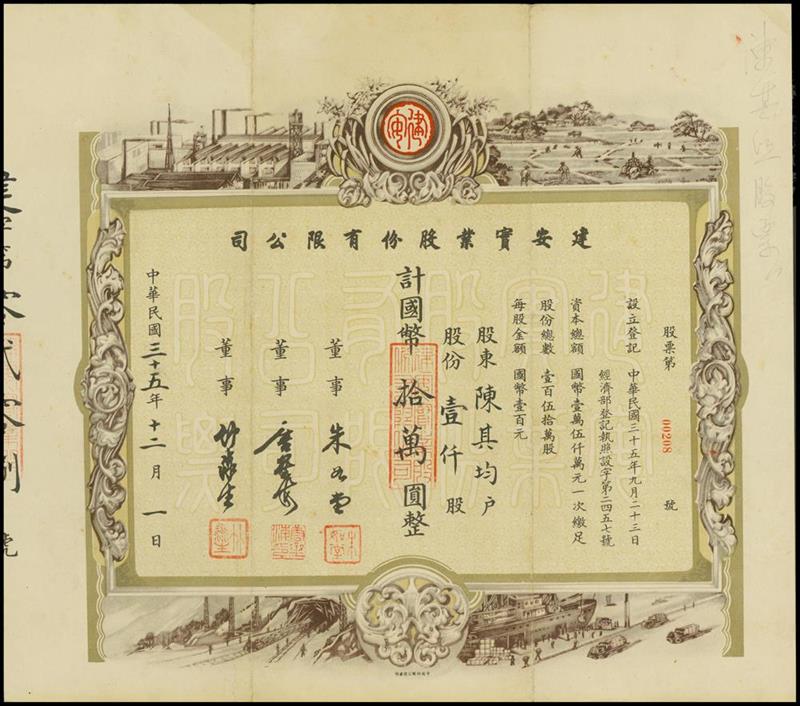 建安
建安實業股份有限公司
股票第 00208 號
設立登記 中華民國三十五年九月二十三日
經濟部登記執照設字第二四五七號
資本總額 國幣壹萬伍仟萬元一次繳足
股份總數 壹百伍拾萬股
每股金額 國幣壹百元
股東 陳其均 户
股份 壹仟 股
計國幣 拾萬 圓整
董事 朱
董事
董事
中華民國三十五年十二月一日
建字第零貳零捌號
陳其均股票